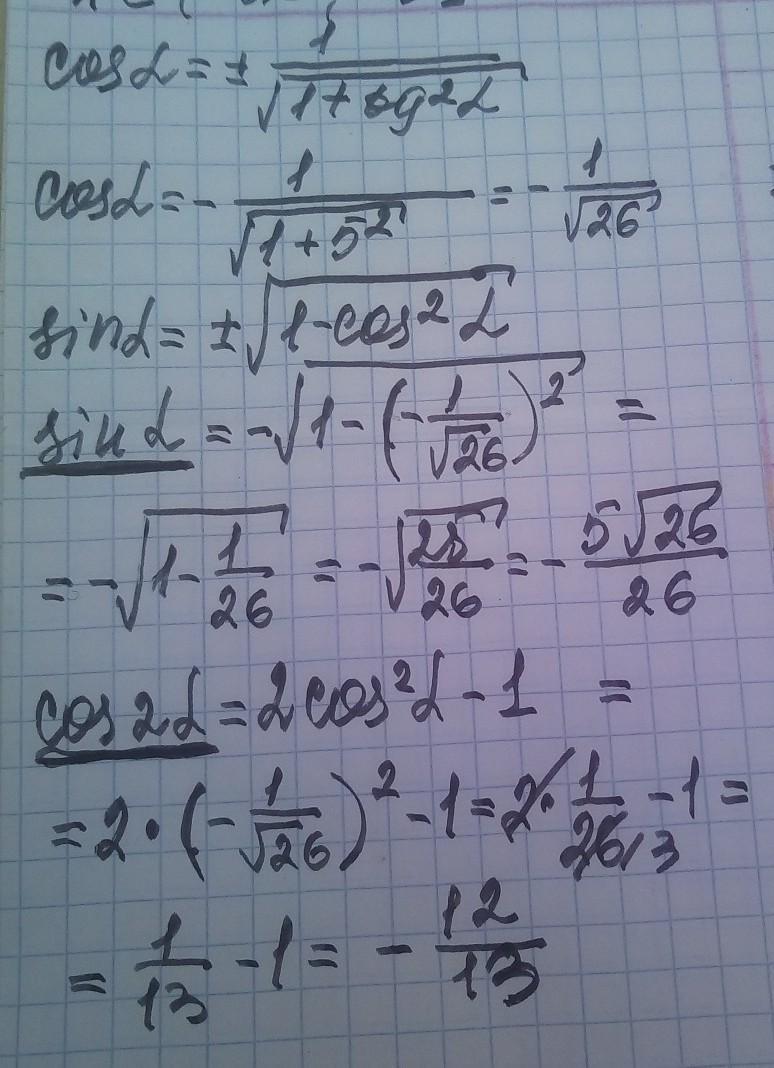 cosα = ± 1/√(1+tg²α)
cosα = - 1/√(1+5²) = - 1/√26
sinα = ±√(1-cos²α)
sinα = -√(1-(-1/√26)²) =
= -√(1-1/26) = -√(25/26) = - 5√26/26
cos2α = 2cos²α - 1 =
= 2·(-1/√26)² - 1 = 2·1/26 13 - 1 =
= 1/13 - 1 = - 12/13